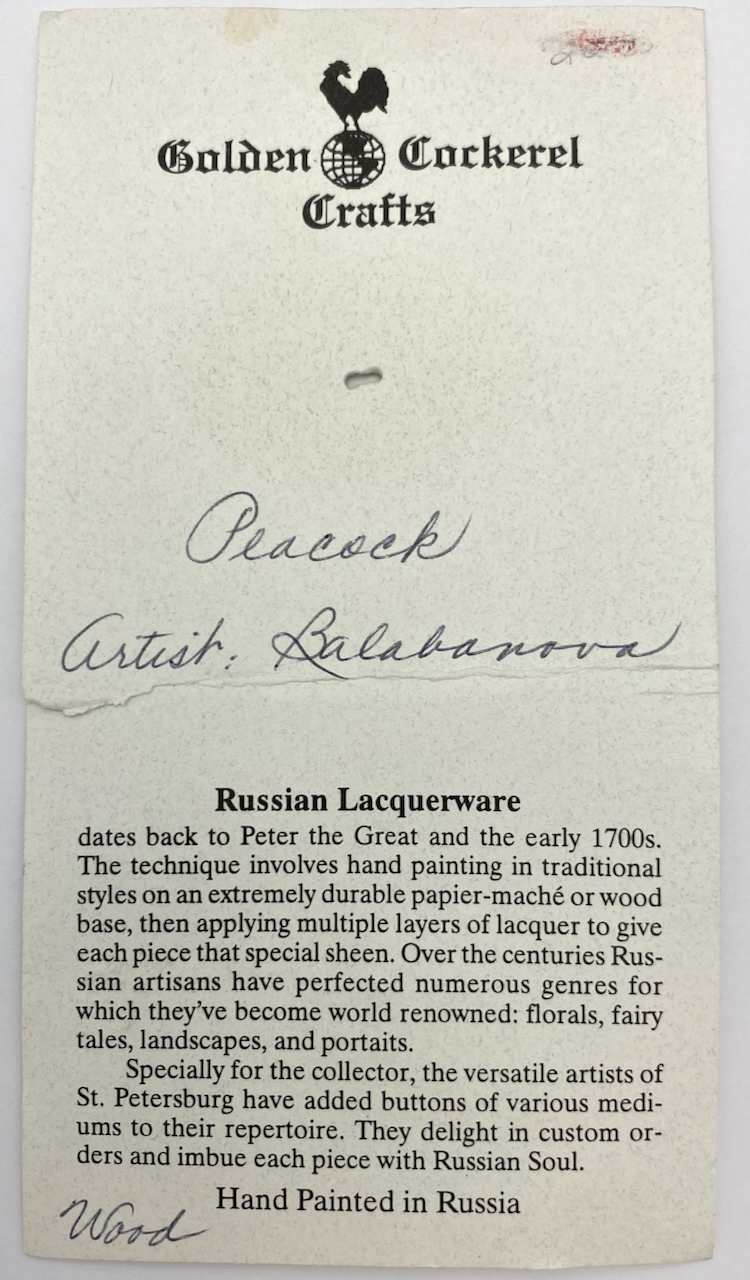 Golden Cockerel
Crafts
Peacock
Artist: Balabanova
Russian Lacquerware
dates back to Peter the Great and the early 1700s.
The technique involves hand painting in traditional
styles on an extremely durable papier-maché or wood
base, then applying multiple layers of lacquer to give
each piece that special sheen. Over the centuries Rus-
sian artisans have perfected numerous genres for
which they've become world renowned: florals, fairy
tales, landscapes, and portaits.
Specially for the collector, the versatile artists of
St. Petersburg have added buttons of various medi-
ums to their repertoire. They delight in custom or-
ders and imbue each piece with Russian Soul.
Hand Painted in Russia
Wood